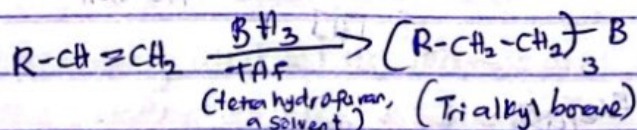 R-CH=CH₂ BH₃ THF → (R-CH₂-CH₂)₃-B
(tetrahydrofuran, a solvent) (Trialkyl borane)